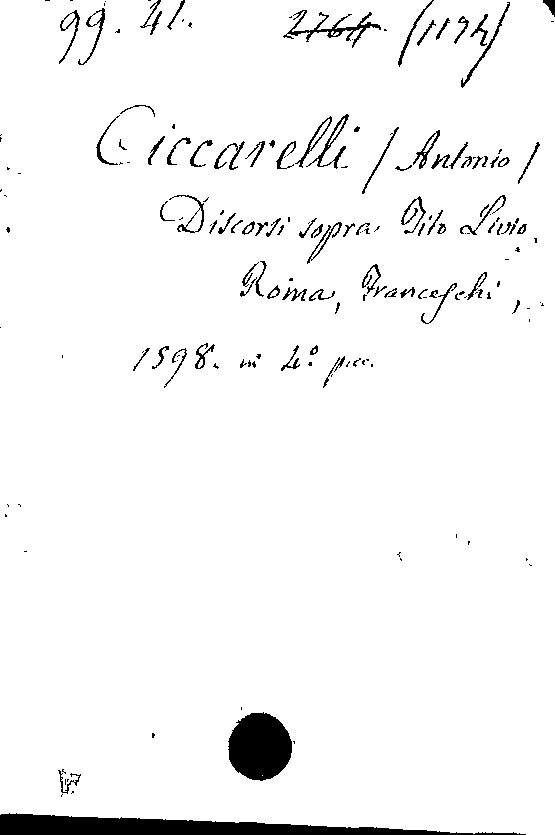 99. 41. 2764 (1174)
Ciccarelli / Antonio /
Discorsi sopra Tito Livio.
Roma, Franceschi,
1598. in 4.º picc.